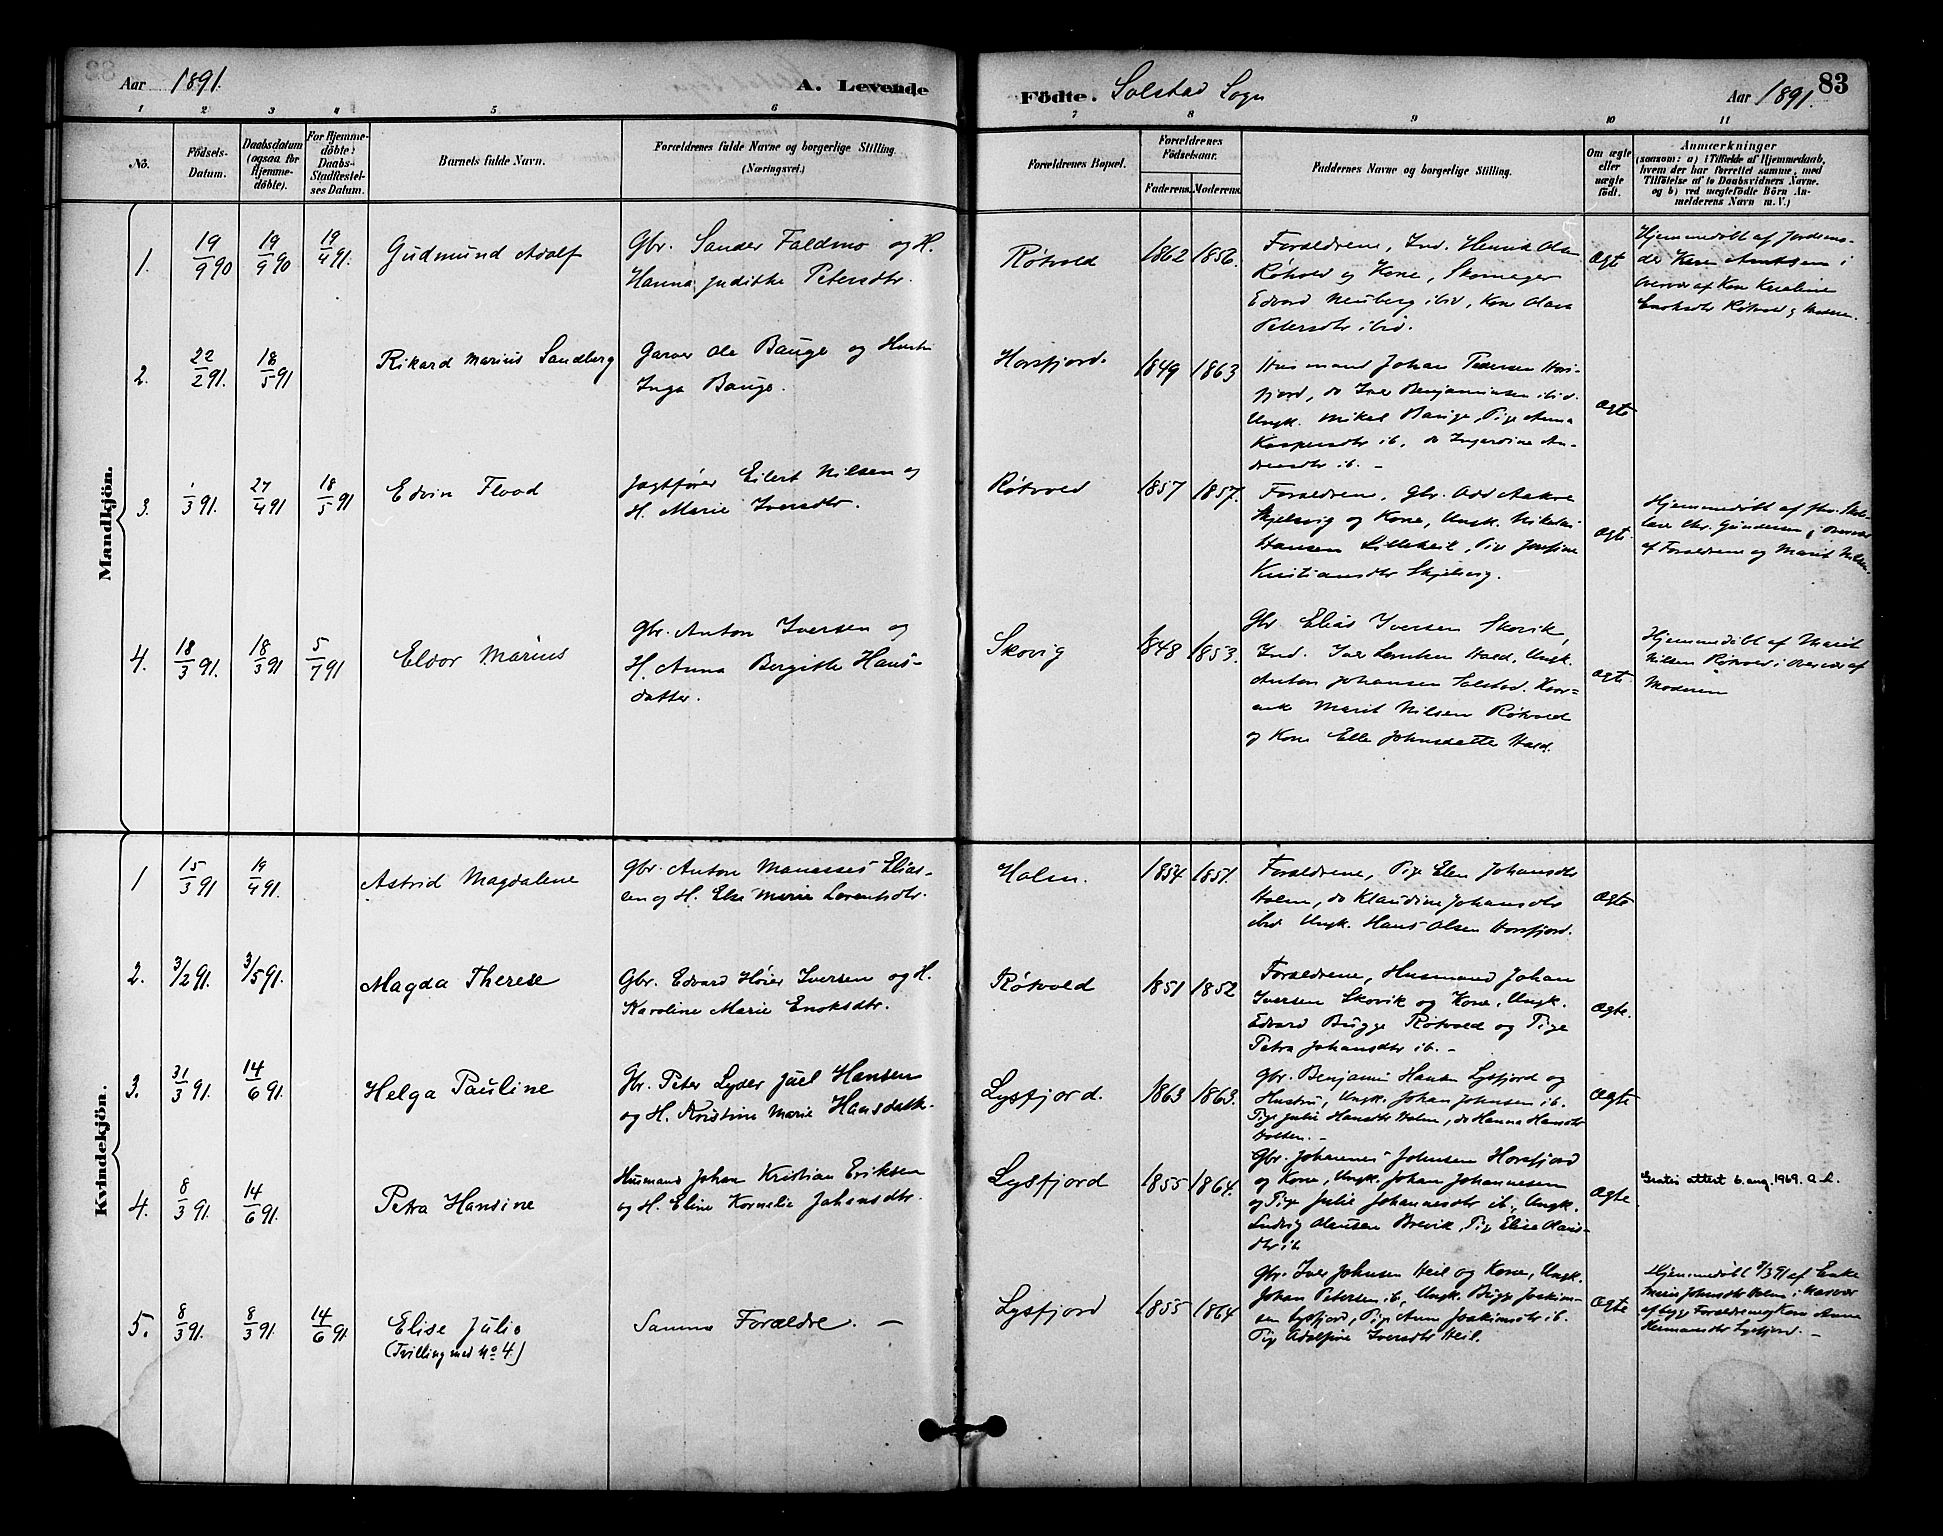 Aar 1891.
A. Levende
Födte. Solstad Sogn
Aar 1891.
83
1 2 3 4 5 6 7 8 9 10 11
No.
Födsels-
Datum.
Daabsdatum
(ogsaa for
Hjemme-
döbte).
For Hjemme-
döbte:
Daabs-
Stadfæstel-
ses Datum.
Barnets fulde Navn.
Forældrenes fulde Navne og borgerlige Stilling
(Næringsvei.)
Forældrenes Bopæl.
Forældrenes
Födselsaar.
Faderens. Moderens.
Faddernes Navne og borgerlige Stilling.
Om ægte
eller
uægte
födt.
Anmærkninger
(saasom: a) i Tilfælde af Hjemmedaab,
hvem der har forrettet samme, med
Tilföielse af to Daabsvidners Navne.
og b) ved uegtefödte Börn An-
melderens Navn m. V.)
Mandkjön.
1.
19/9 90
19/9 90
19/4 91.
Gudmund Adolf
Gbr. Sander Faldmo og H.
Hanna Judithe Petersdtr.
Røtvold
1862
1856.
Forældrene, Ind. Henrik Olsen
Røtvold og Kone, Skomager
Edvard Neuberg ibid, Kone
Petersdtr ibid.
Ægt
Hjemmedøbt af Jordemo-
der Karen i
Overvær af Kone
Enoksdtr Røtvold og
2.
22/2 91.
18/5 91
Rikard Marius Sandberg
Garver Ole Bauge og Hustru
Inga Bauge.
Horsfjord.
1849
1863
Husmand Johan Pedersen Hors-
fjord, do Iver Benjaminsen ibid.
Ungk. Mikal Bauge, Pige Anna
Kaspersdtr ib, do Ingerdine An-
dreasdtr ib. –
Ægte
3.
1/3 91.
27/4 91
18/5 91
Edvin Flood
Jagtfører Eilert Nilsen og
H. Marie Iversdtr.
Røtvold
1857
1857.
Forældrene, Gbr.
Skjelsvig og Kone, Ungk. Nikolai
Hansen Lilleheil, Pie Josefine
Kristiansdtr Skjelsvig.
Ægte
Hjemmedøbt af
Chr. Gundersen i Overvær
af Forældrene og Marit Nilsen.
4.
18/3 91.
18/3 91
5/7 91
Eldor Marius
Gbr. Anton Iversen og
H. Anna Bergitte Hans-
datter.
Skovig
1848
1853.
Gbr Elias Iversen Skovik,
Ind. Iver Hald, Ungk.
Anton Johansen Solstad.
Marit Nilsen Røtvold
og Kone Elle Johnsdatter Hald.
Ægte
Hjemmedøbt af Marit
Nilsen Røtvold i Overvær af
Moderen
Kvindekjön.
1
15/3 91
19/4 91.
Astrid Magdalene
Gbr. Anton Manasses Elias-
sen og H. Else Marie Lorentsdtr.
Holm.
1834
1851.
Forældrene, Pige Elen Johansdtr
Holm, do Klaudine Johansdtr
ibid. Ungk. Hans Olsen Horsfjord.
Ægte
2.
3/2 91.
3/5 91.
Magda Therese
Gbr. Edvard Høier Iversen og H.
Karoline Marie Enoksdtr.
Røtvold
1851
1852
Forældrene, Husmand Johan
Iversen Skovik og Kone, Ungk.
Edvard Bugge Røtvold og Pige
Petra Johansdtr ib. –
Ægte.
3.
31/3 91.
14/6 91.
Helga Pauline
Gbr. Peter Lyder Juel Hansen
og H. Kristine Marie Hansdatter.
Lysfjord.
1863
1863.
Gbr. Benjamin Hansen Lysfjord og
Hustru, Ungk. Johan Johnsen ib.
Pige Julie Hansdtr Holm, do Hanna Hansdtr
Holten. –
Ægte
4.
8/3 91.
14/6 91.
Petra Hansine
Husmand Johan Kristian Eriksen
og H. Eline Kornelie Johansdtr.
Lysfjord
1855
1864.
Gbr. Johannes Johnsen Horsfjord
og Kone, Ungk. Johan Johannesen
og Pige Julie Johannesdtr ib., Ungk.
Ludvig Olausen Brevik, Pige Elise Olaus-
dtr ib
Ægte
Gratis attest 6. aug. 1969. A.L.
5.
8/3 91.
8/3 91.
14/6 91
Elise Julie
(Tvilling med No 4.)
Samme Forældre. –
Lysfjord
1855
1864
Gbr. Iver Johnsen Heil og Kone, Ungk.
Johan Petersen ib, Ungk. Bugge Joakim-
sen Lysfjord, Pige Anne Joakimsdtr ib.
Pig Adolfine Iversdtr Heil.
Ægte
Hjemmedøbt 8/3 91 af Enke
Marie Johnsdtr Holm, i Nærvær
af begge Forældrene og Kone Anne
Hermansdtr Lysfjord. –